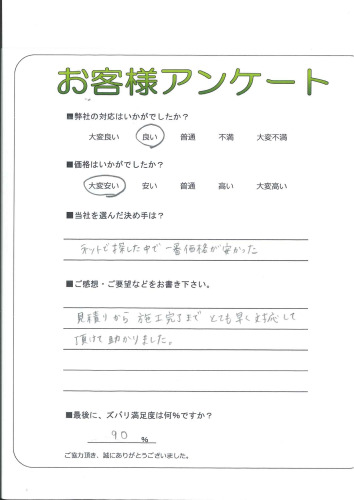 お客様アンケート
■弊社の対応はいかがでしたか？
大変良い 良い 普通 不満 大変不満
■価格はいかがでしたか？
大変安い 安い 普通 高い 大変高い
■当社を選んだ決め手は？
ネットで探した中で一番価格が安かった
■ご感想・ご要望などをお書き下さい。
見積りから施工完了までとても早く対応して
頂けて助かりました。
■最後に、ズバリ満足度は何％ですか？
90 %
ご協力頂き、誠にありがとうございました。